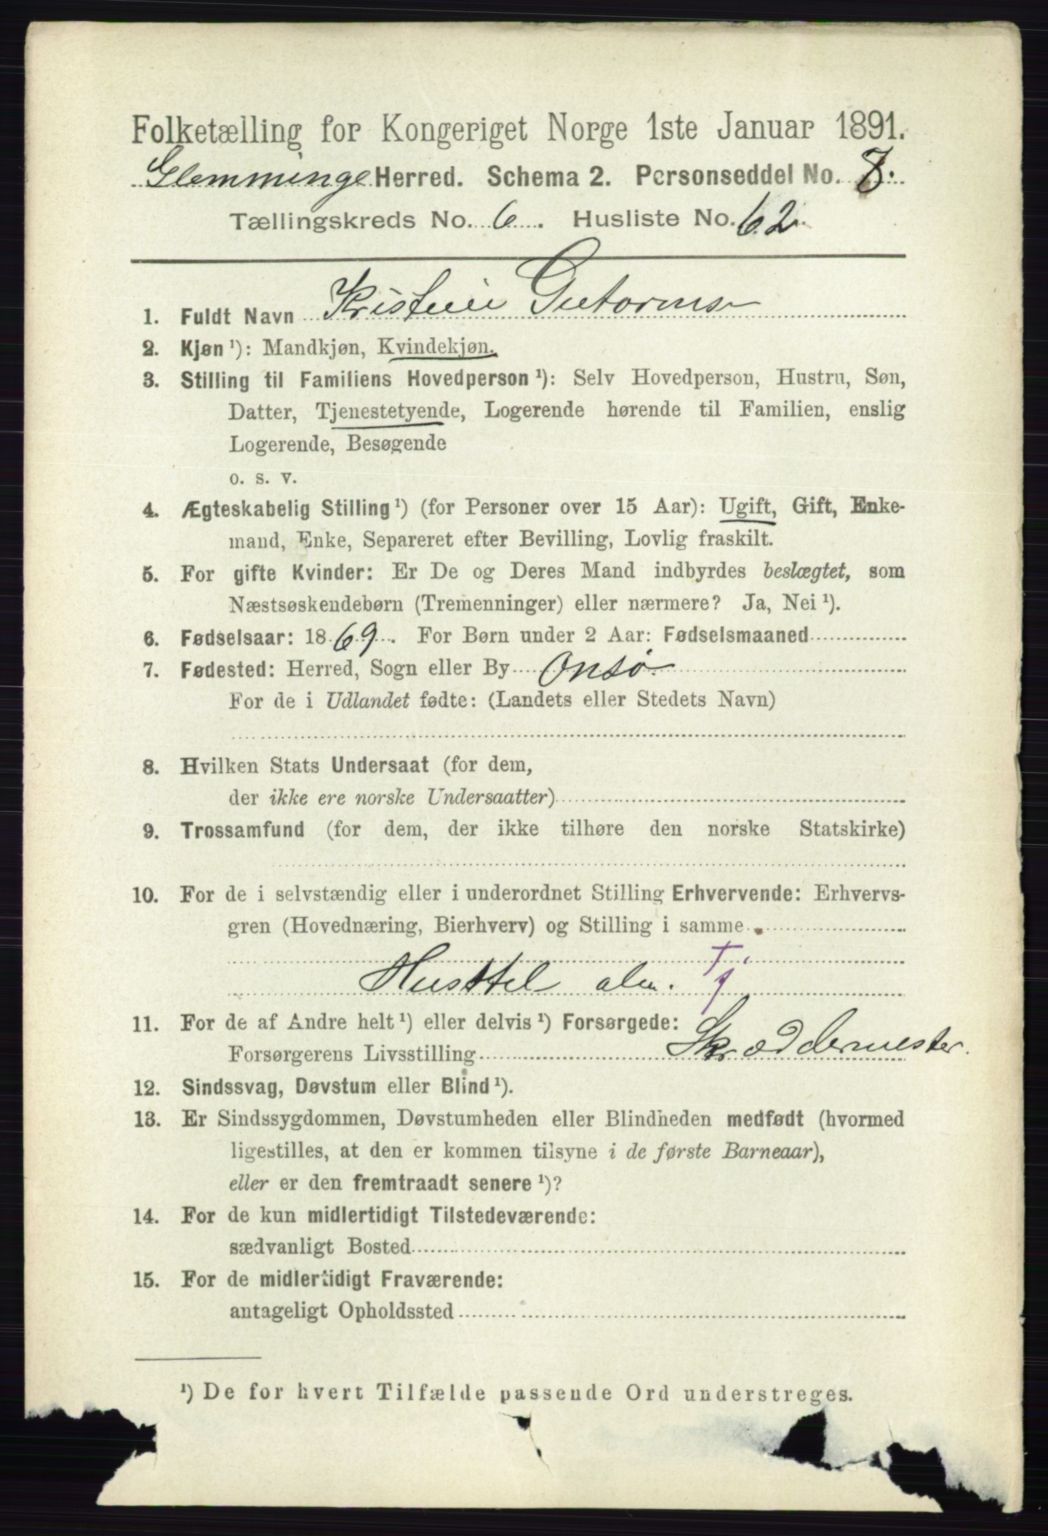 Folketælling for Kongeriget Norge 1ste Januar 1891.
Glemminge Herred. Schema 2. Personseddel No. 8.
Tællingskreds No. 6. Husliste No. 62.
1. Fuldt Navn Kristine Gutorms
2. Kjøn ¹): Mandkjøn, Kvindekjøn.
3. Stilling til Familiens Hovedperson ¹): Selv Hovedperson, Hustru, Søn,
Datter, Tjenestetyende, Logerende hørende til Familien, enslig
Logerende, Besøgende
o. s. v.
4. Ægteskabelig Stilling ¹) (for Personer over 15 Aar): Ugift, Gift, Enke-
mand, Enke, Separeret efter Bevilling, Lovlig fraskilt.
5. For gifte Kvinder: Er De og Deres Mand indbyrdes beslægtet, som
Næstsøskendebørn (Tremenninger) eller nærmere? Ja, Nei ¹).
6. Fødselsaar: 1869. For Børn under 2 Aar: Fødselsmaaned
7. Fødested: Herred, Sogn eller By Onsø
For de i Udlandet fødte: (Landets eller Stedets Navn)
8. Hvilken Stats Undersaat (for dem,
der ikke ere norske Undersaatter)
9. Trossamfund (for dem, der ikke tilhøre den norske Statskirke)
10. For de i selvstændig eller i underordnet Stilling Erhvervende: Erhvervs-
gren (Hovednæring, Bierhverv) og Stilling i samme
Husstel alm. Tj.
11. For de af Andre helt ¹) eller delvis ¹) Forsørgede:
Forsørgerens Livsstilling Skræddermester.
12. Sindssvag, Døvstum eller Blind ¹).
13. Er Sindssygdommen, Døvstumheden eller Blindheden medfødt (hvormed
ligestilles, at den er kommen tilsyne i de første Barneaar),
eller er den fremtraadt senere ¹)?
14. For de kun midlertidigt Tilstedeværende:
sædvanligt Bosted
15. For de midlertidigt Fraværende:
antageligt Opholdssted
¹) De for hvert Tilfælde passende Ord understreges.